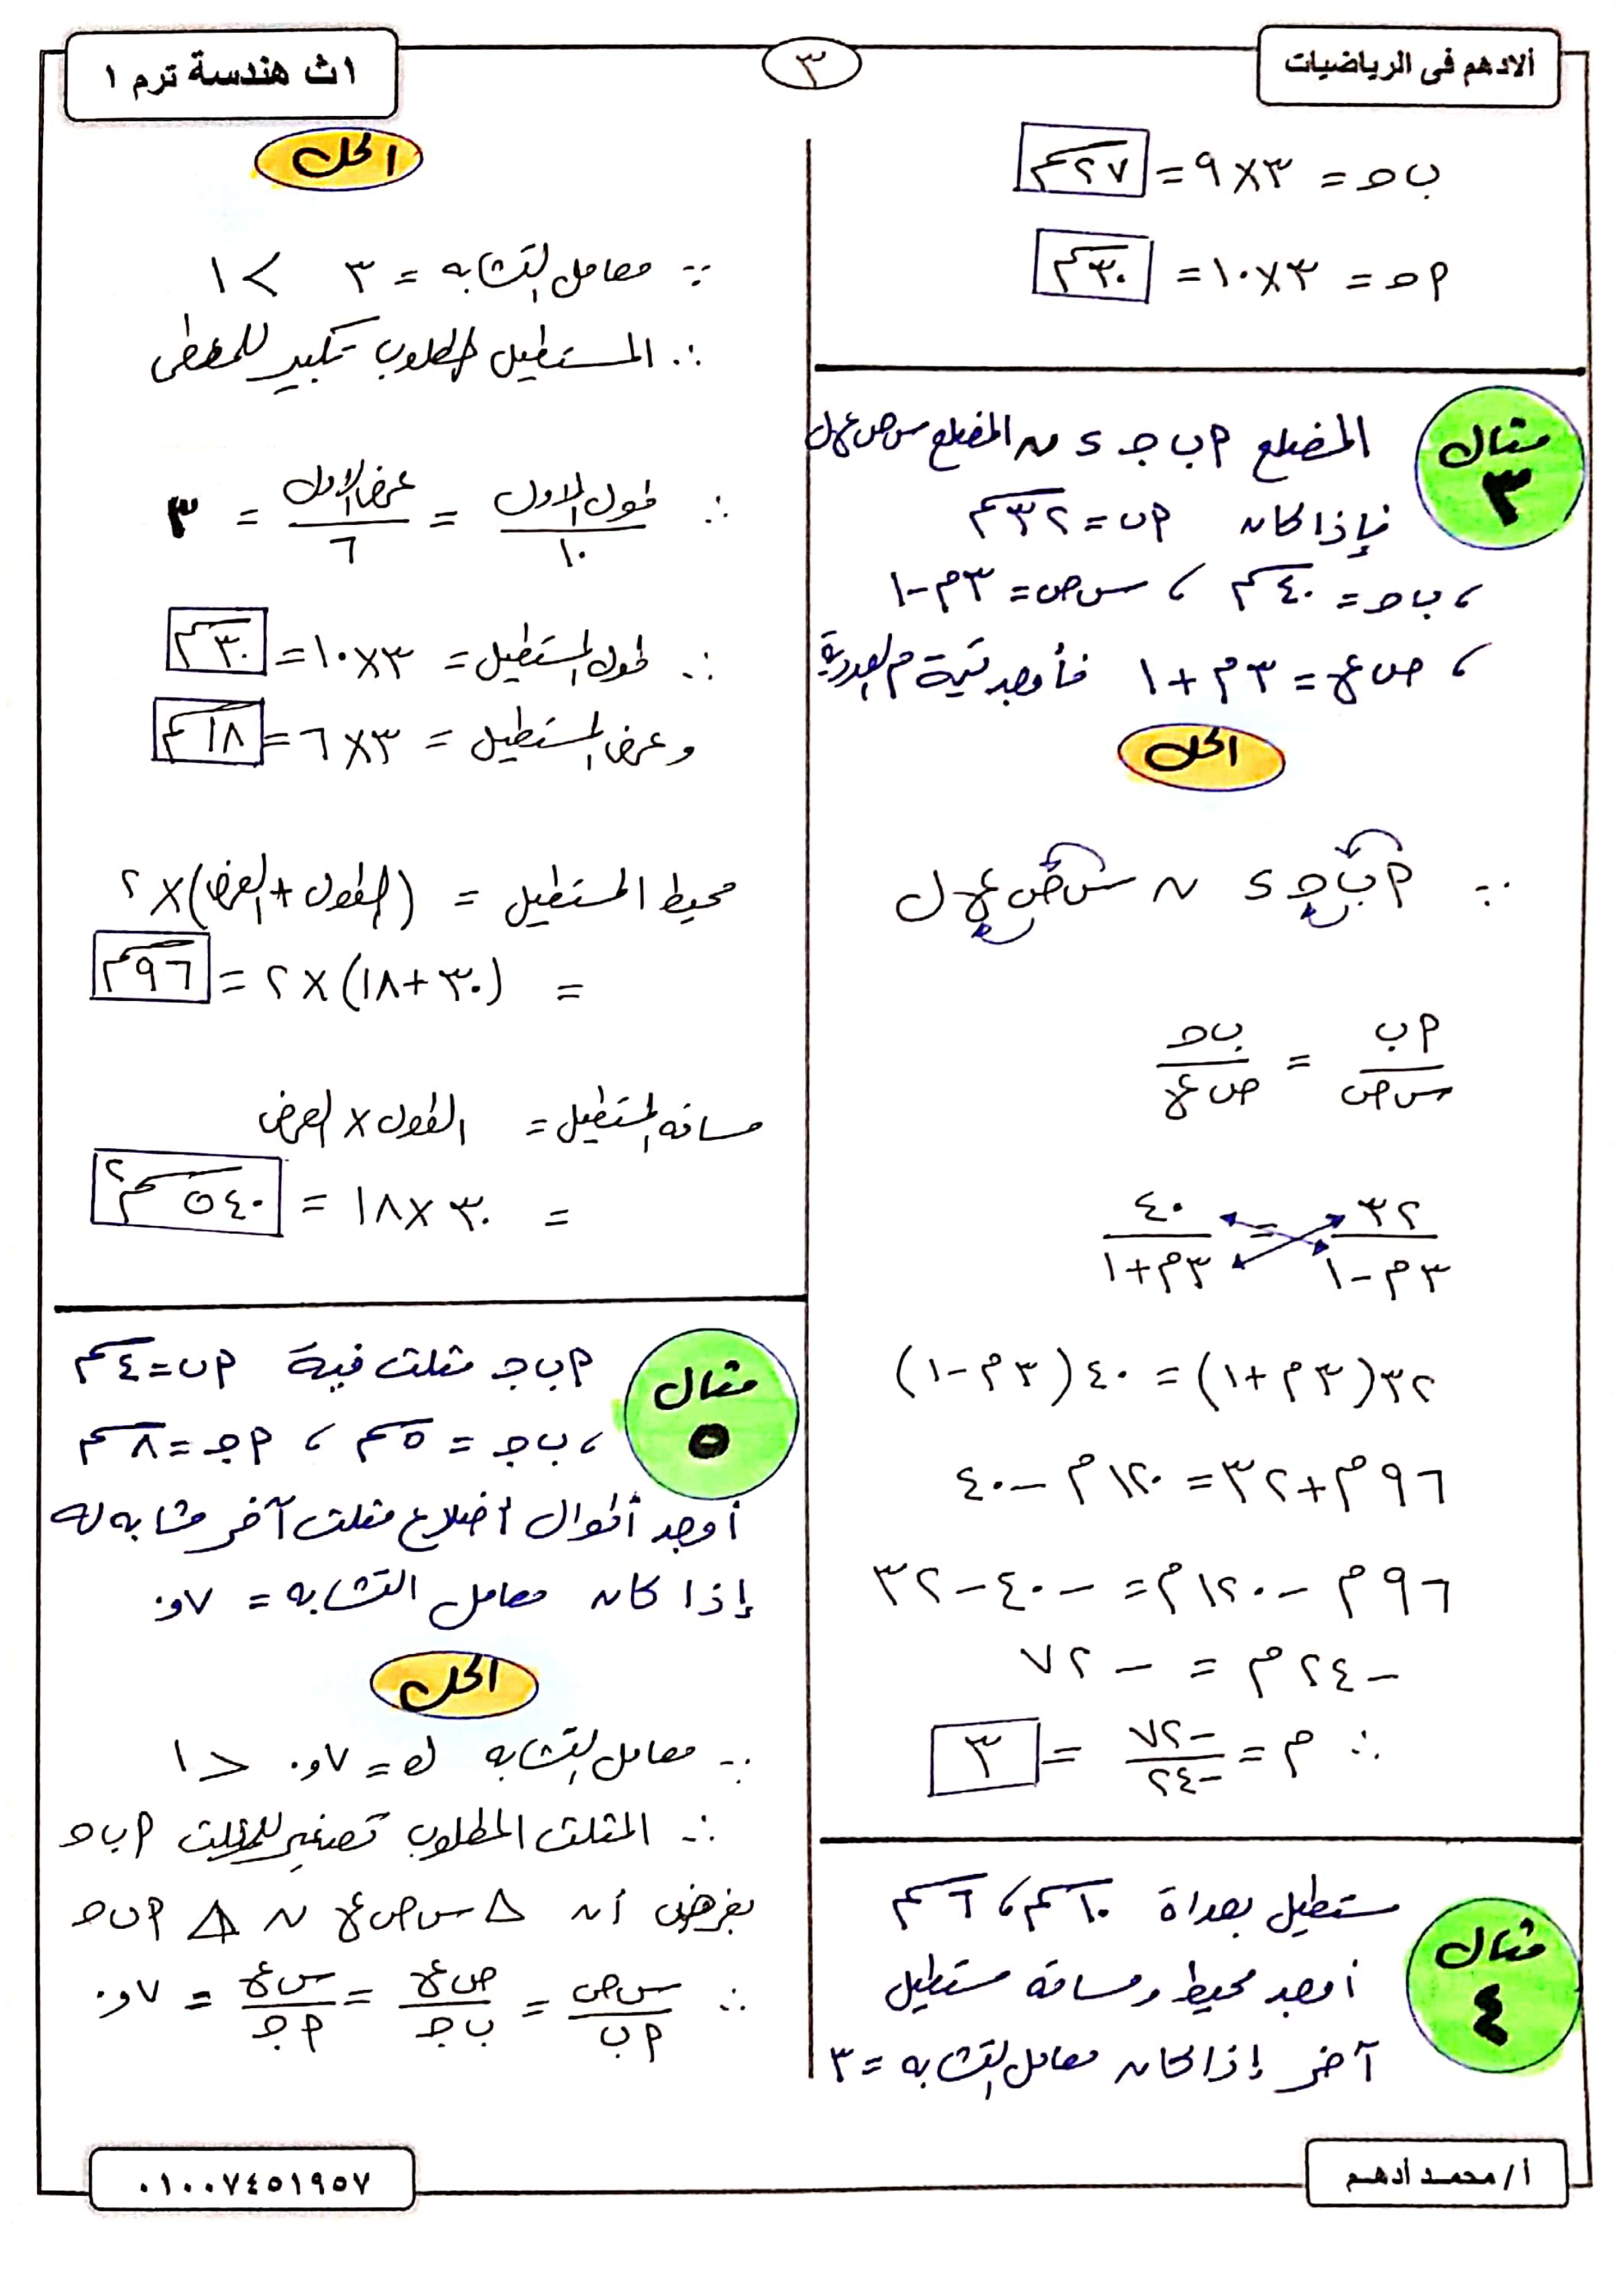 ألادهم فى الرياضيات
٣
١ث هندسة ترم ١
ب جـ = ٣×٩ = ٢٧سم
أ جـ = ٣×١٠ = ٣٠سم
مثال ٣
المضلع أ ب جـ د ~ المضلع س ص ع ل
فإذا كان أ ب = ٣٢سم
، ب جـ = ٤٠سم ، س ص = ٣م-١
، ص ع = ٣م+١ فأوجد قيمة م العددية
الحل
∵ أ ب جـ د ~ س ص ع ل
أ ب / س ص = ب جـ / ص ع
٣٢ / ٣م-١ = ٤٠ / ٣م+١
٣٢(٣م+١) = ٤٠(٣م-١)
٩٦م+٣٢ = ١٢٠م-٤٠
٩٦م-١٢٠م = -٤٠-٣٢
-٢٤م = -٧٢
∴ م = -٧٢ / -٢٤ = ٣
مثال ٤
مستطيل بعداة ١٠سم، ٦سم
أوجد محيط ومساحة مستطيل
آخر إذا كان معامل التشابه = ٣
الحل
∵ معامل التشابه = ٣ > ١
∴ المستطيل المطلوب تكبير للمعطى
∴ طول الاول / ١٠ = عرض الاول / ٦ = ٣
∴ طول المستطيل = ٣×١٠ = ٣٠سم
وعرض المستطيل = ٣×٦ = ١٨سم
محيط المستطيل = (الطول+العرض)×٢
= (٣٠+١٨)×٢ = ٩٦سم
مساحة المستطيل = الطول×العرض
= ٣٠×١٨ = ٥٤٠سم٢
مثال ٥
أ ب جـ مثلث فية أ ب = ٤سم
، ب جـ = ٥سم ، أ جـ = ٨سم
أوجد أطوال أضلاع مثلث آخر مشابه له
إذا كان معامل التشابه = ٠,٧
الحل
∵ معامل التشابه ك = ٠,٧ < ١
∴ المثلث المطلوب تصغير للمثلث أ ب جـ
بفرض أن △ س ص ع ~ △ أ ب جـ
∴ س ص / أ ب = ص ع / ب جـ = س ع / أ جـ = ٠,٧
أ/محمد أدهم
٠١٠٠٧٤٥١٩٥٧